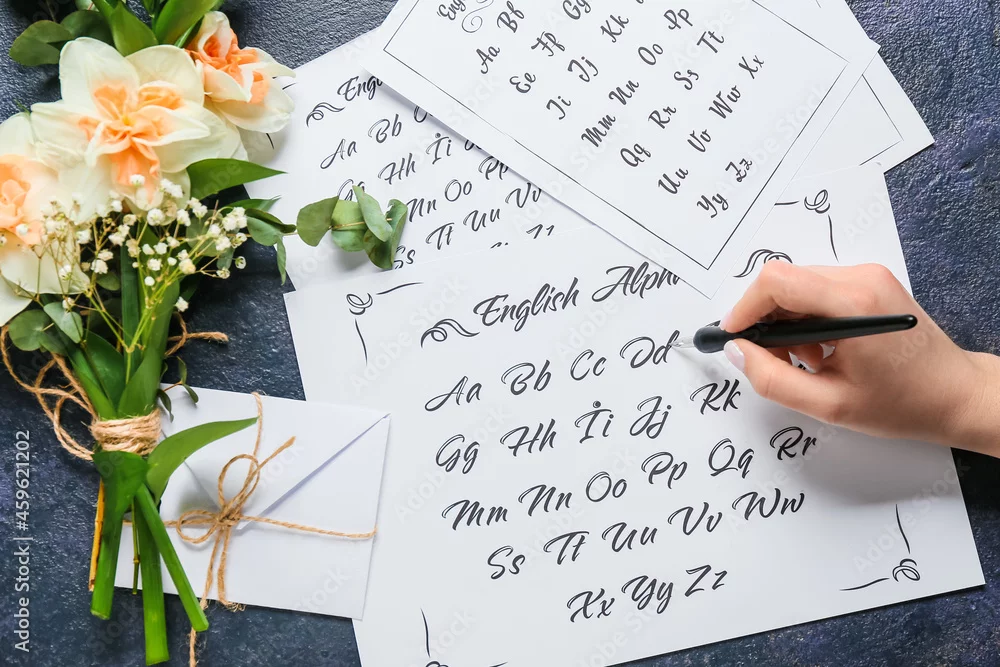 Engl
Bb
Gg
Pp
Aa
Ff
Kk
Tt
Ee
Jj
Oo
Xx
Ii
Nn
Ss
Ww
Mm
Rr
Vv
Qq
Zz
Uu
Yy
English
Aa Bb
Hh
Oo Pp
Nn
Tt Uu Vv
English Alpha
Aa Bb Cc Dd
Gg Hh İi Jj Kk
Mm Nn Oo Pp Qq Rr
Ss Tt Uu Vv Ww
Xx Yy Zz
Adobe Stock | #459621202